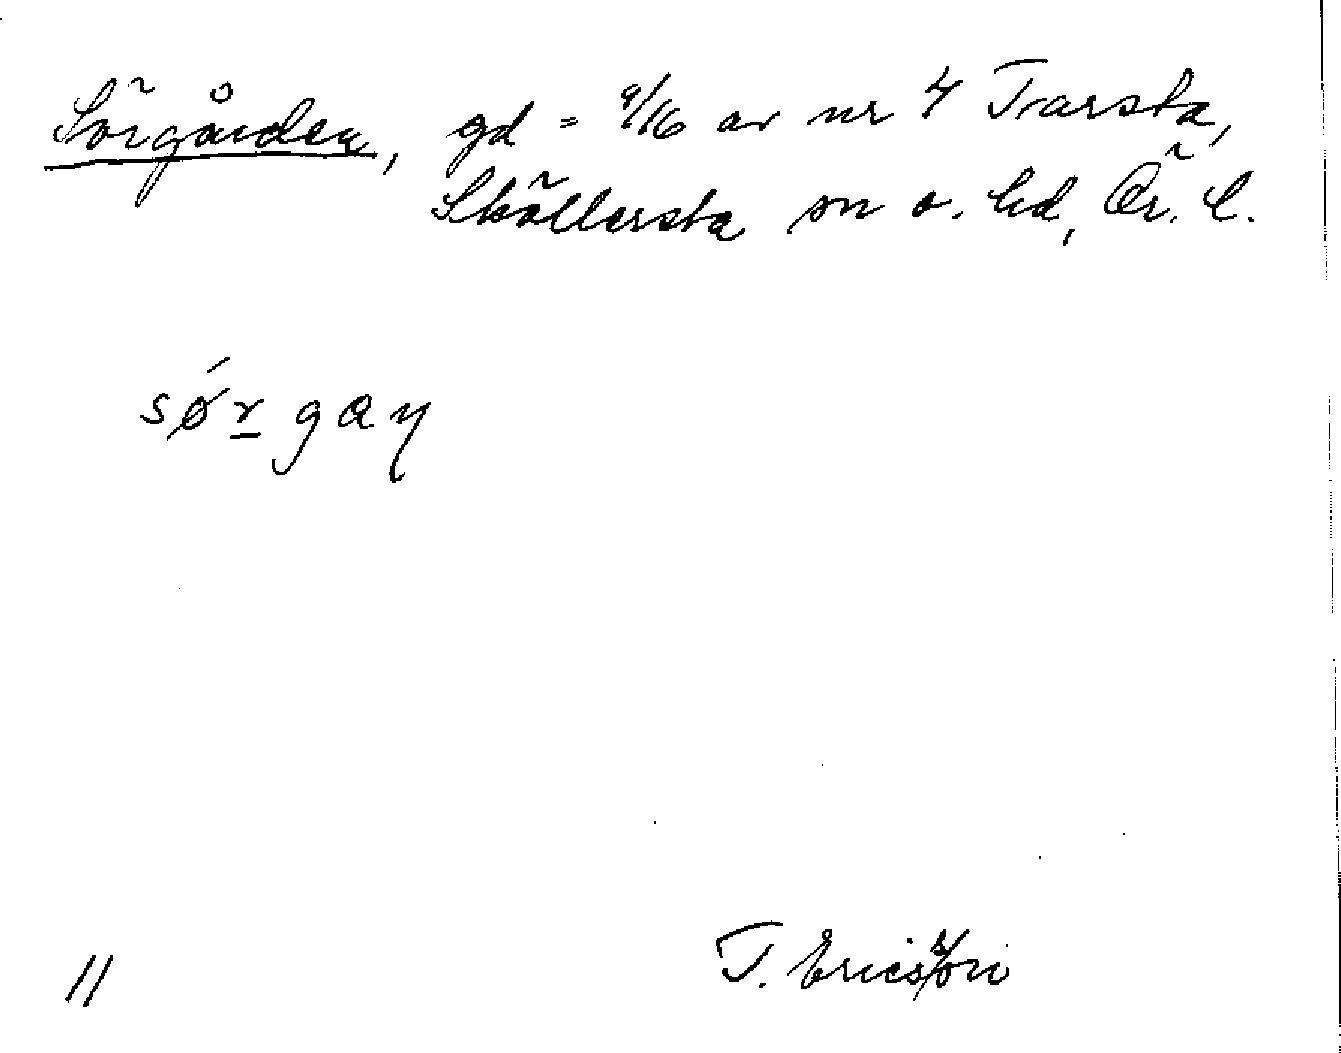 Sörgården, gd = 9/16 av nr 4 Trarsta,
Sköllersta sn o. hd, Ör. l.
sǿr̲gaŋ
T. Ericsson
11